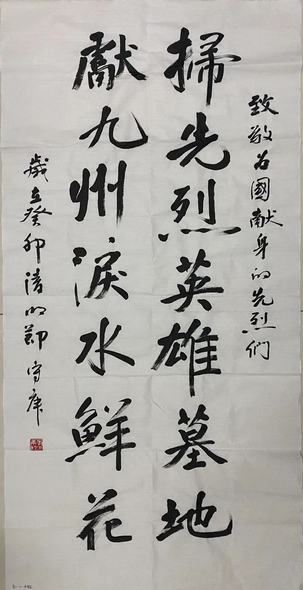 致敬为國献身的先烈們
掃先烈英雄墓地
獻九州淚水鮮花
歲在癸卯清明鄭守庚